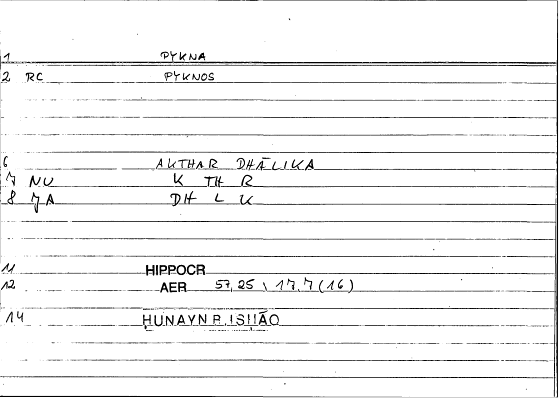 1 PYKNA
2 RC PYKNOS
6 AKTHAR DHĀLIKA
7 NU K TH R
8 JA DH L K
11 HIPPOCR
12 AER 57,25 \ 17,7 (16)
14 ḤUNAYN B. ISḤĀQ